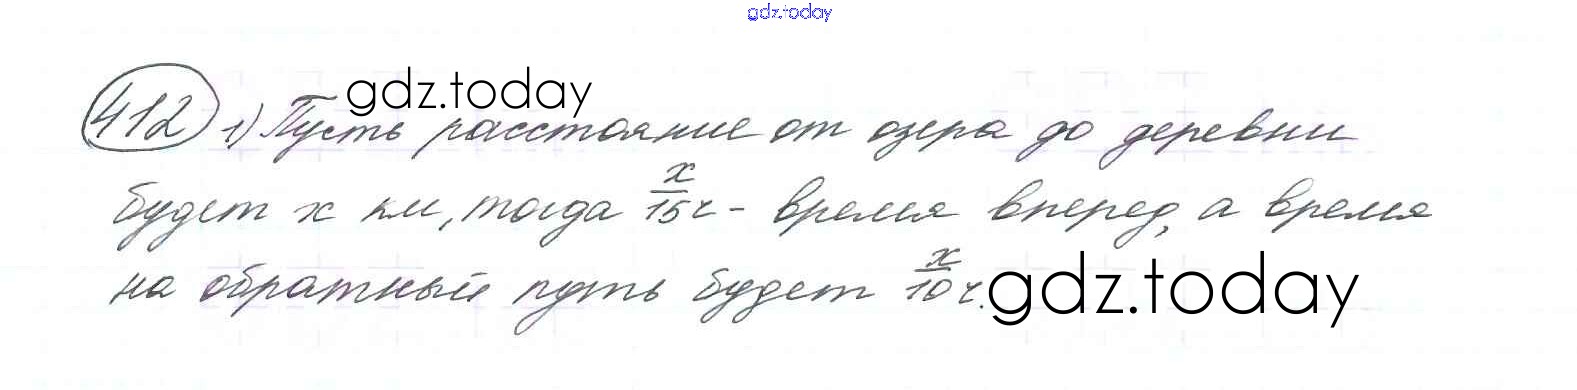 gdz.today
412 1) Пусть расстояние от озера до деревни
gdz.today
будет x км, тогда x/15 ч - время вперед, а время
на обратный путь будет x/10 ч.
gdz.today